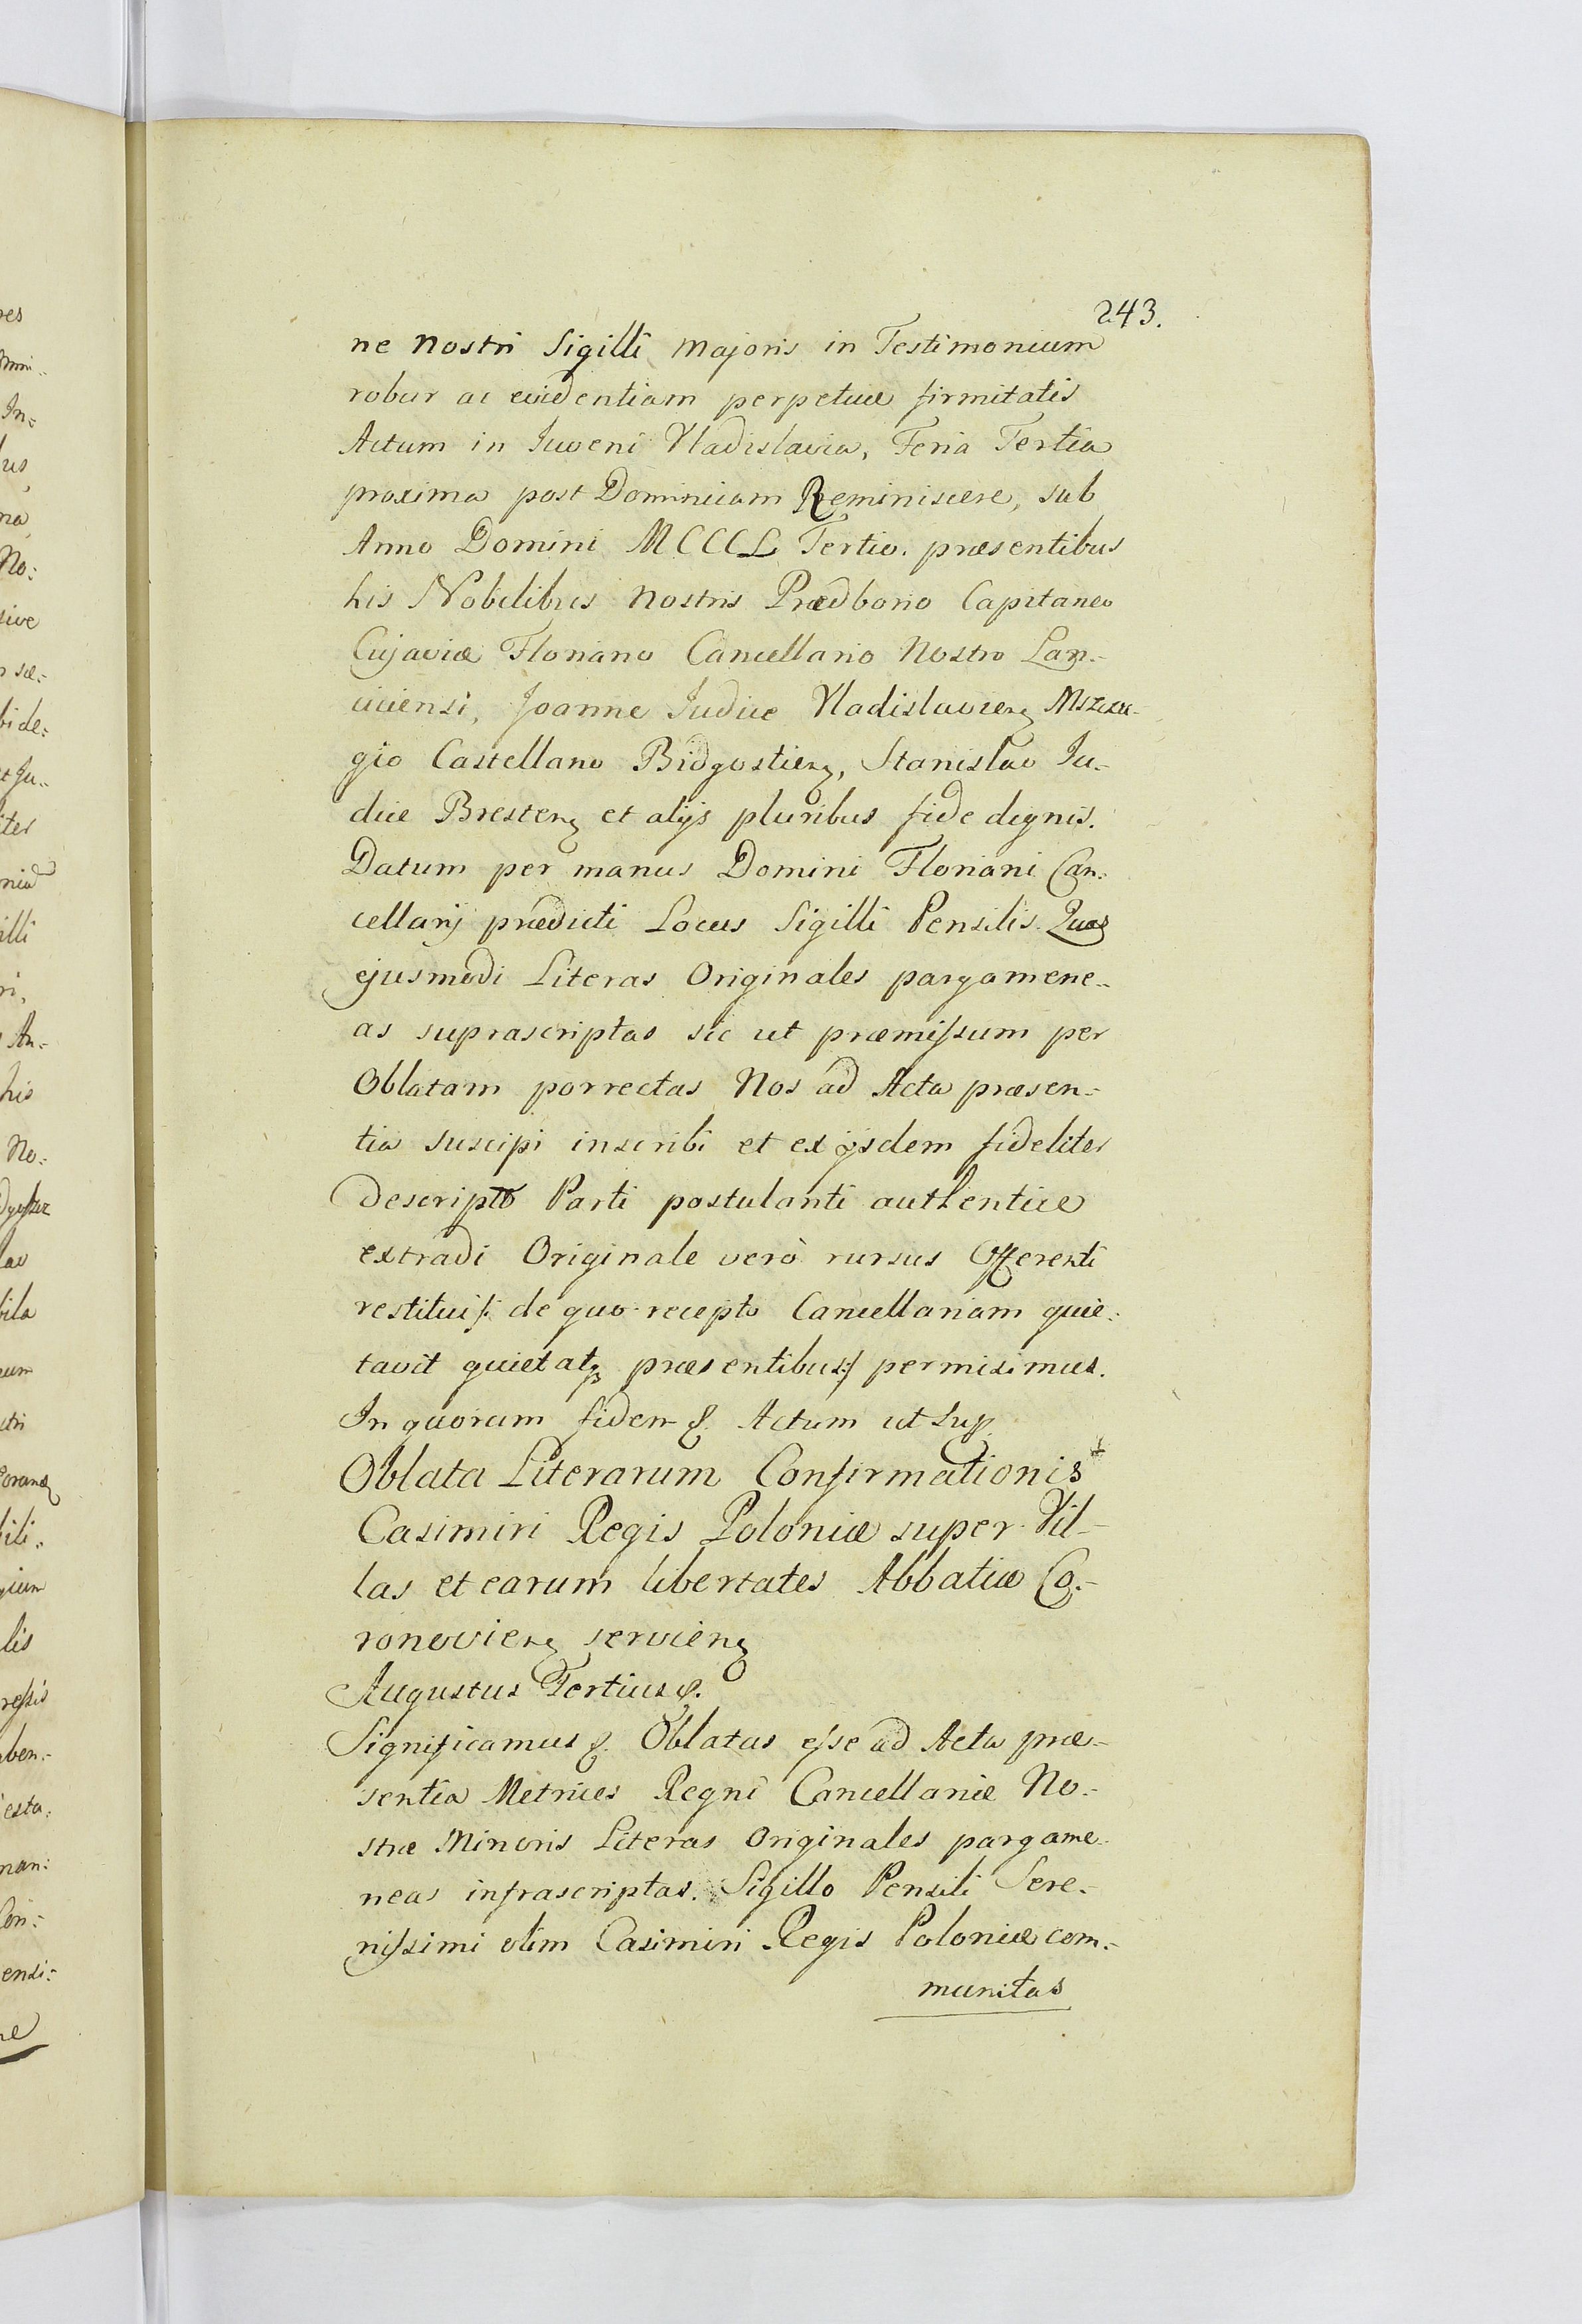 243.
ne nostri Sigilli majoris in Testimonium
robur ac evidentiam perpetuæ firmitatis
Actum in Iuveni Vladislavia, Feria Tertia
proxima post Dominicam Reminiscere, sub
Anno Domini MCCCL Tertio. præsentibus
his Nobilibus nostris Prædborio Capitaneo
Cujaviæ Floriano Cancellario Nostro Lan-
ciciensi, Joanne Iudice Vladislavien
gio Castellano Bidgostien, Stanislao Iu-
dice Bresten et alijs pluribus fide dignis.
Datum per manus Domini Floriani Can:
cellarij prædicti Locus Sigilli Pensilis. Quas
ejusmodi Literas Originales pargamene-
as suprascriptas sic ut præmissum per
Oblatam porrectas Nos ad Acta præsen-
tia suscipi inscribi et ex ijsdem fideliter
descripto Parti postulanti authentice
extradi Originale verò rursus Offerenti
restitui /: de quo recepto Cancellariam quie:
tavit quietatq præsentibus :/ permisimus.
In quorum fidem &. Actum ut sup.
Oblata Literarum Confirmationis
Casimiri Regis Poloniæ super Vil-
las et earum libertates Abbatiæ Co-
ronovien servien
Augustus Tertius &.
Significamus &. Oblatas esse ad Acta præ-
sentia Metrices Regni Cancellariæ No-
stræ Minoris Literas Originales pargame-
neas infrascriptas. Sigillo Pensili Sere-
nissimi olim Casimiri Regis Poloniæ com-
munitas